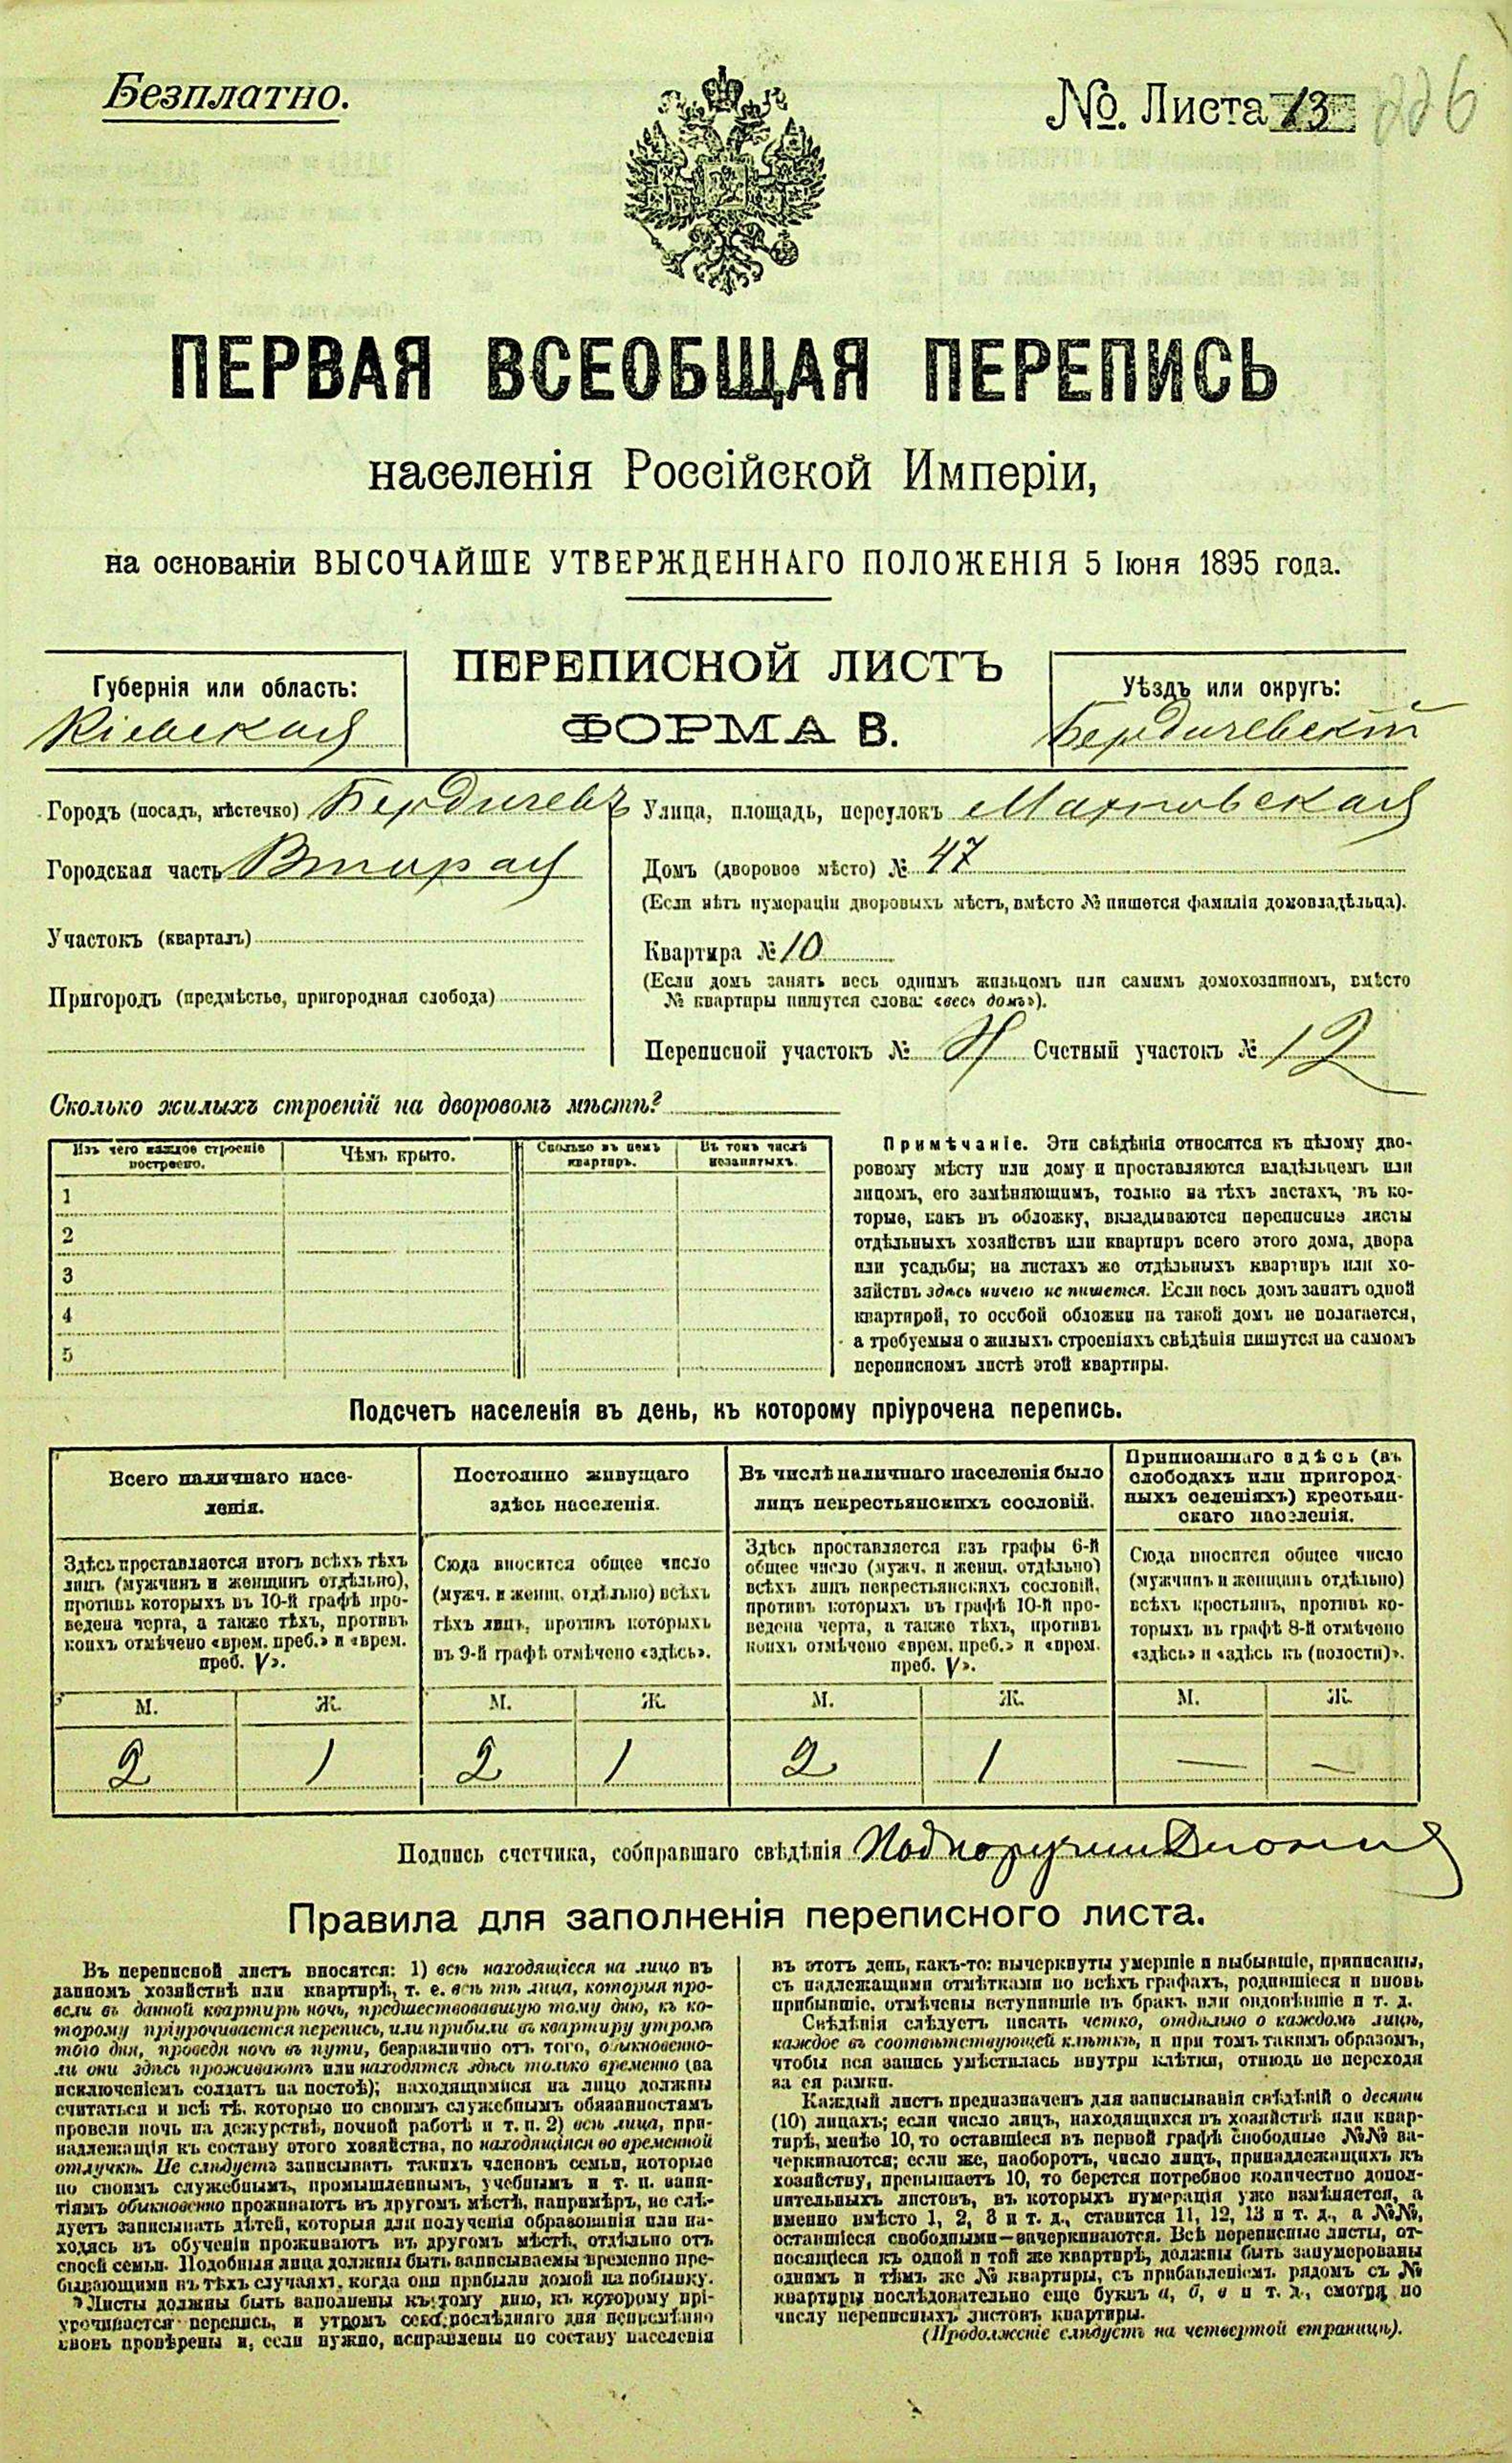 Безплатно.
№. Листа 13
226
ПЕРВАЯ ВСЕОБЩАЯ ПЕРЕПИСЬ
населенія Россійской Имперіи,
на основаніи ВЫСОЧАЙШЕ УТВЕРЖДЕННАГО ПОЛОЖЕНІЯ 5 Іюня 1895 года.
ПЕРЕПИСНОЙ ЛИСТЪ
ФОРМА В.
Губернія или область:
Кіевская
Уѣздъ или округъ:
Бердичевскій
Городъ (посадъ, мѣстечко) Бердичевъ
Городская часть Вторая
Участокъ (кварталъ)
Пригородъ (предмѣстье, пригородная слобода)
Улица, площадь, переулокъ Махновская
Домъ (дворовое мѣсто) № 47
(Если нѣтъ нумераціи дворовыхъ мѣстъ, вмѣсто № пишется фамилія домовладѣльца).
Квартира № 10
(Если домъ занятъ весь однимъ жильцомъ или самимъ домохозяиномъ, вмѣсто
№ квартиры пишутся слова: «весь домъ»).
Переписной участокъ № Счетный участокъ № 12
Сколько жилыхъ строеній на дворовомъ мѣстѣ?
Изъ чего каждое строеніе построено.
Чѣмъ крыто.
Сколько въ немъ квартиръ.
Въ томъ числѣ незанятыхъ.
1
2
3
4
5
Примѣчаніе. Эти свѣдѣнія относятся къ цѣлому дво-
ровому мѣсту или дому и проставляются владѣльцемъ или
лицомъ, его замѣняющимъ, только на тѣхъ листахъ, въ ко-
торые, какъ въ обложку, вкладываются переписные листы
отдѣльныхъ хозяйствъ или квартиръ всего этого дома, двора
или усадьбы; на листахъ же отдѣльныхъ квартиръ или хо-
зяйствъ здѣсь ничего не пишется. Если весь домъ занятъ одной
квартирой, то особой обложки на такой домъ не полагается,
а требуемыя о жилыхъ строеніяхъ свѣдѣнія пишутся на самомъ
переписномъ листѣ этой квартиры.
Подсчетъ населенія въ день, къ которому пріурочена перепись.
Всего наличнаго насе-
ленія.
Здѣсь проставляются итогъ всѣхъ тѣхъ
лицъ (мужчинъ и женщинъ отдѣльно),
противъ которыхъ въ 10-й графѣ про-
ведена черта, а также тѣхъ, противъ
коихъ отмѣчено «врем. преб.» и «врем.
преб. V».
М. Ж.
2 1
Постоянно живущаго
здѣсь населенія.
Сюда вносится общее число
(мужч. и женщ. отдѣльно) всѣхъ
тѣхъ лицъ, противъ которыхъ
въ 9-й графѣ отмѣчено «здѣсь».
М. Ж.
2 1
Въ числѣ наличнаго населенія было
лицъ некрестьянскихъ сословій.
Здѣсь проставляется изъ графы 6-й
общее число (мужч. и женщ. отдѣльно)
всѣхъ лицъ некрестьянскихъ сословій,
противъ которыхъ въ графѣ 10-й про-
ведена черта, а также тѣхъ, противъ
коихъ отмѣчено «врем. преб.» и «врем.
преб. V».
М. Ж.
2 1
Приписаннаго здѣсь (въ
слободахъ или пригород-
ныхъ селеніяхъ) крестьян-
скаго населенія.
Сюда вносится общее число
(мужчинъ и женщинъ отдѣльно)
всѣхъ крестьянъ, противъ ко-
торыхъ въ графѣ 8-й отмѣчено
«здѣсь» и «здѣсь къ (волости)».
М. Ж.
— —
Подпись счетчика, собиравшаго свѣдѣнія
Правила для заполненія переписного листа.
Въ переписной листъ вносятся: 1) всѣ находящіеся на лицо въ
данномъ хозяйствѣ или квартирѣ, т. е. всѣ тѣ лица, которыя про-
вели въ данной квартирѣ ночь, предшествовавшую тому дню, къ ко-
торому пріурочивается перепись, или прибыли въ квартиру утромъ
того дня, проведя ночь въ пути, безразлично отъ того, обыкновенно-
ли они здѣсь проживаютъ или находятся здѣсь только временно (за
исключеніемъ солдатъ на постоѣ); находящимися на лицо должны
считаться и всѣ тѣ, которые по своимъ служебнымъ обязанностямъ
провели ночь на дежурствѣ, ночной работѣ и т. п. 2) всѣ лица, при-
надлежащія къ составу этого хозяйства, но находящіяся во временной
отлучкѣ. Не слѣдуетъ записывать такихъ членовъ семьи, которые
по своимъ служебнымъ, промышленнымъ, учебнымъ и т. п. заня-
тіямъ обыкновенно проживаютъ въ другомъ мѣстѣ, напримѣръ, не слѣ-
дуетъ записывать дѣтей, которыя для полученія образованія или на-
ходясь въ обученіи проживаютъ въ другомъ мѣстѣ, отдѣльно отъ
своей семьи. Подобныя лица должны быть записываемы временно пре-
бывающими въ тѣхъ случаяхъ, когда они прибыли домой на побывку.
Листы должны быть заполнены къ тому дню, къ которому прі-
урочивается перепись, и утромъ сего послѣдняго дня непремѣнно
вновь провѣрены и, если нужно, исправлены по составу населенія
въ этотъ день, какъ-то: вычеркнуты умершіе и выбывшіе, приписаны,
съ надлежащими отмѣтками во всѣхъ графахъ, родившіеся и вновь
прибывшіе, отмѣчены вступившіе въ бракъ или овдовѣвшіе и т. д.
Свѣдѣнія слѣдуетъ писать четко, отдѣльно о каждомъ лицѣ,
каждое въ соотвѣтствующей клѣткѣ, и при томъ такимъ образомъ,
чтобы вся запись умѣстилась внутри клѣтки, отнюдь не переходя
за ея рамки.
Каждый листъ предназначенъ для записыванія свѣдѣній о десяти
(10) лицахъ; если число лицъ, находящихся въ хозяйствѣ или квар-
тирѣ, менѣе 10, то оставшіеся въ первой графѣ свободные №№ за-
черкиваются; если же, наоборотъ, число лицъ, принадлежащихъ къ
хозяйству, превышаетъ 10, то берется потребное количество допол-
нительныхъ листовъ, въ которыхъ нумерація уже измѣняется, а
именно вмѣсто 1, 2, 3 и т. д., ставится 11, 12, 13 и т. д., а №№,
оставшіеся свободными—зачеркиваются. Всѣ переписные листы, от-
носящіеся къ одной и той же квартирѣ, должны быть занумерованы
однимъ и тѣмъ же № квартиры, съ прибавленіемъ рядомъ съ №
квартиры послѣдовательно еще буквъ а, б, в и т. д., смотря по
числу переписныхъ листовъ квартиры.
(Продолженіе слѣдуетъ на четвертой страницѣ).